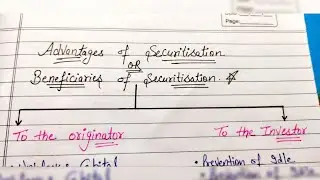 Page:
Advantages of Securitisation
OR
Beneficiaries of Securitisation.
To the originator
To the Investor
• Prevention of Idle